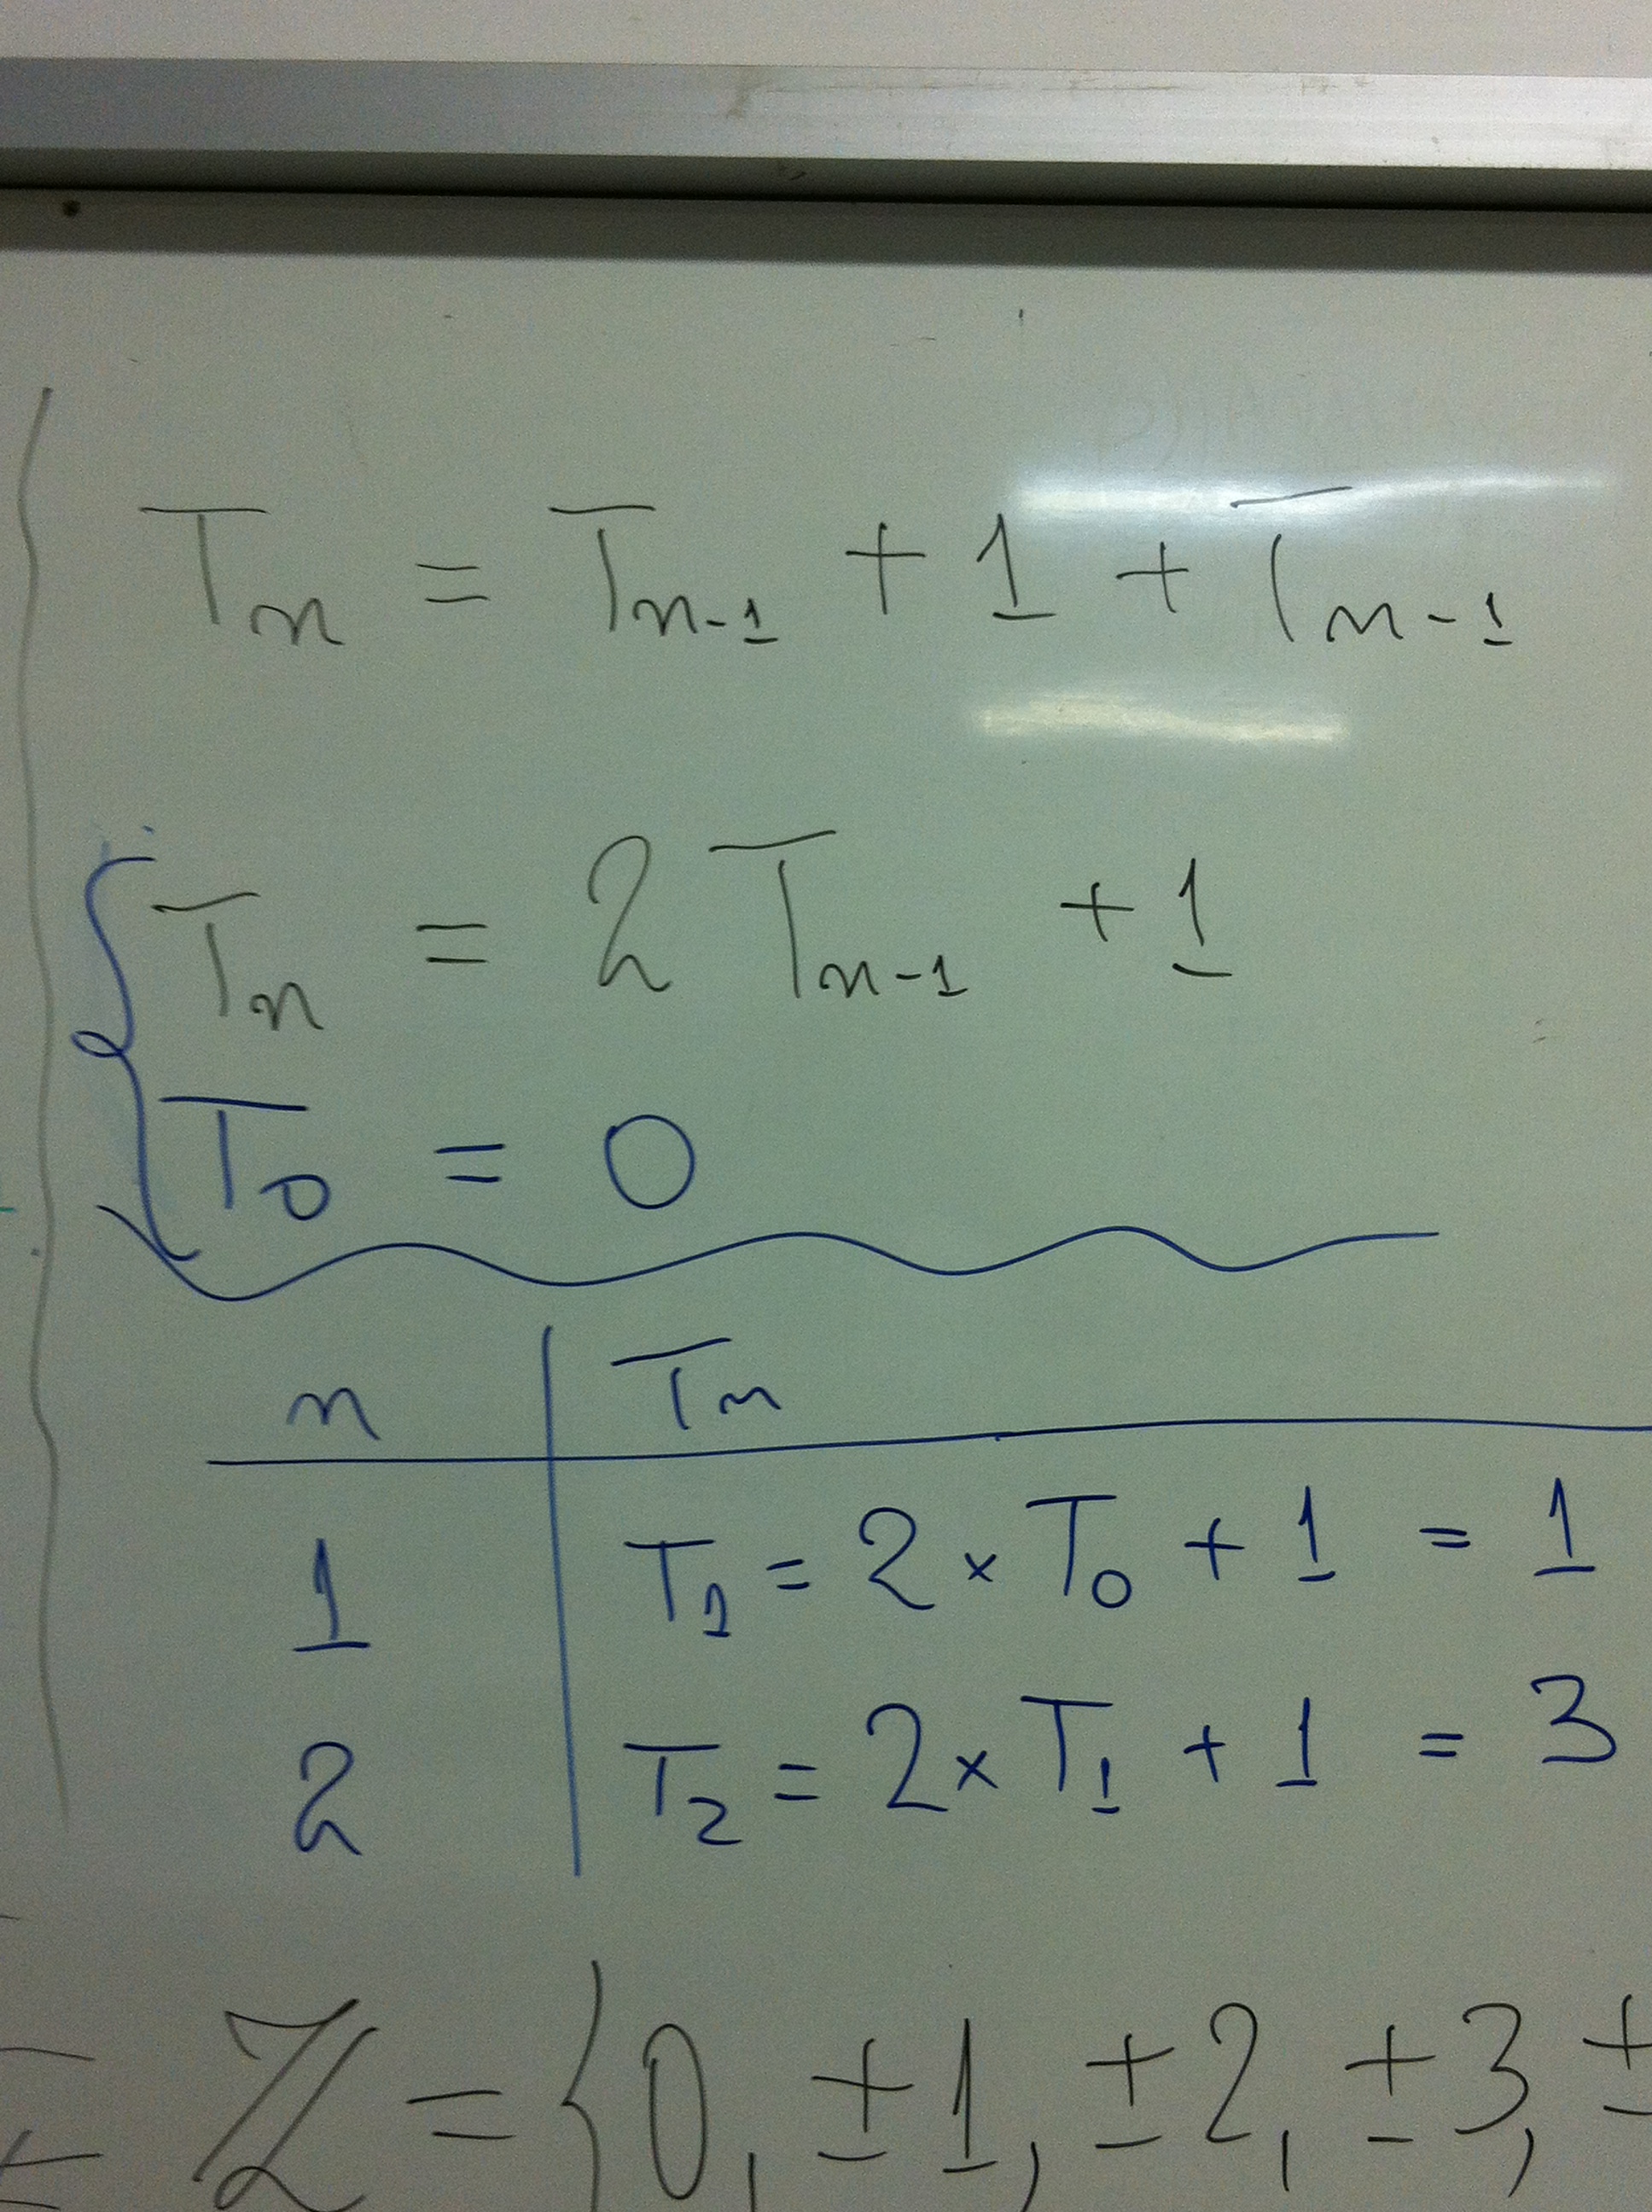 Tn = Tn-1 + 1 + Tn-1
Tn = 2Tn-1 + 1
T0 = 0
n | Tn
1 | T1 = 2 × T0 + 1 = 1
2 | T2 = 2 × T1 + 1 = 3
ℤ = {0, ±1, ±2, ±3, ±